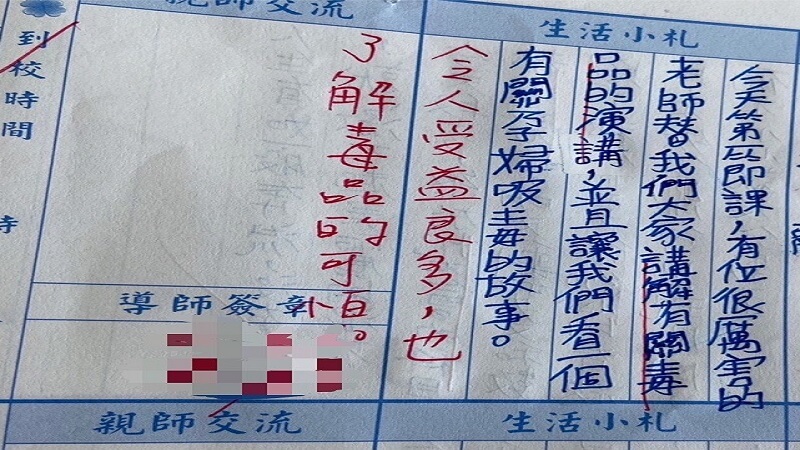 生活小札
今天第五節課，有位很厲害的
老師替我們大家講解有關毒
品的演講，並且讓我們看一個
有關孕婦吸毒的故事。
令人受益良多，也
了解毒品的可怕。
親師交流
導師簽章
到校時間
時
生活小札
親師交流